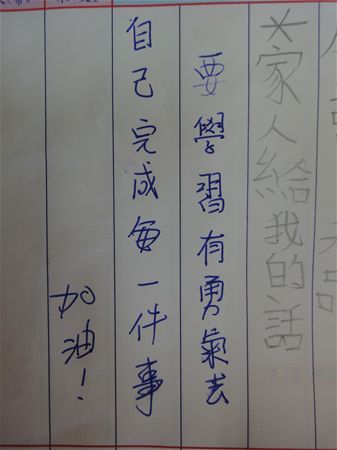 *家人給我的話
要學習有勇氣去
自己完成每一件事
加油！